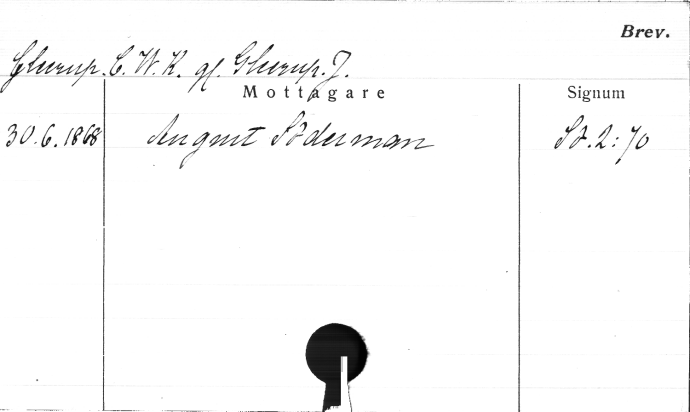 Brev.
Gleerup. C. W. K. gf. Gleerup. J.
Mottagare Signum
30.6.1868 August Söderman Sö.2:70